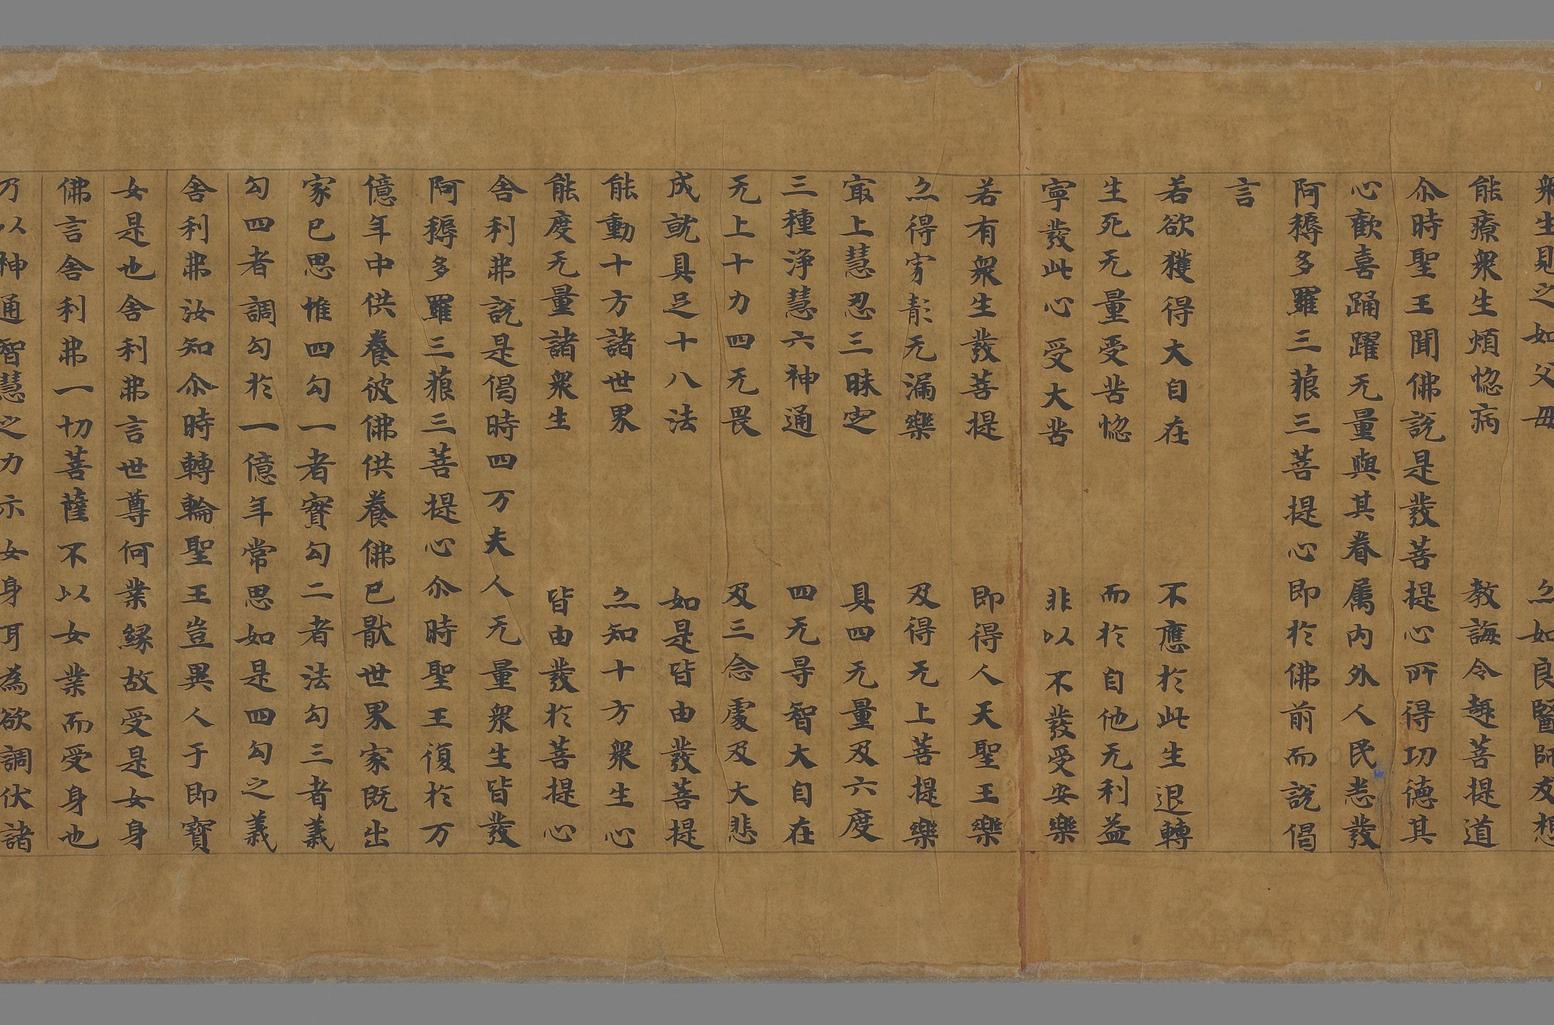 衆生見之如父母　亦如良醫師友想
能療衆生煩惚病　教誨令趣菩提道
尒時聖王聞佛說是發菩提心所得功德其
心歡喜踊躍无量與其眷属內外人民悉發
阿耨多羅三藐三菩提心即於佛前而說偈
言
若欲獲得大自在　不應於此生退轉
生死无量受苦惚　而於自他无利益
寧發此心受大苦　非以不發受安樂
若有衆生發菩提　即得人天聖王樂
亦得穷影无漏樂　及得无上菩提樂
冣上慧忍三昧定　具四无量及六度
三種淨慧六神通　四无㝵智大自在
无上十力四无畏　及三念處及大悲
成就具足十八法　如是皆由發菩提
能動十方諸世界　亦知十方衆生心
能度无量諸衆生　皆由發於菩提心
舍利弗說是偈時四万夫人无量衆生皆發
阿耨多羅三藐三菩提心尒時聖王復於万
億年中供養彼佛供養佛已猒世界家既出
家已思惟四勾一者寶勾二者法勾三者義
勾四者調勾於一億年常思如是四勾之義
舍利弗汝知尒時轉輪聖王豈異人乎即寶
女是也舍利弗言世尊何業緣故受是女身
佛言舍利弗一切菩薩不以女業而受身也
乃以神通智慧之力示女身耳為欲調伏諸